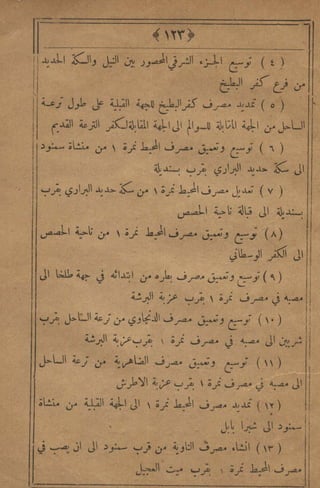 ﴿ ١٢٣ ﴾
( ٤ ) توسيع الجزء الشرقي المحصور بين النيل والسكة الحديد
من فرع كفر البطيخ
( ٥ ) تمديد مصرف كفر البطيخ للجهة القبلية على طول ترعة
الساحل من الجهة المقابلة للسوالم الى الجهة المقابلة لكفر الترعة القديم
( ٦ ) توسيع وتعميق مصرف المحيط نمرة ١ من منشاة سمنود
الى سكة حديد البراري بقرب بسنديلة
( ٧ ) تعديل مصرف المحيط نمرة ١ من سكة حديد البراري بقرب
بسنديلة الى قبالة ناحية الحصص
( ٨ ) توسيع وتعميق مصرف المحيط نمرة ١ من ناحية الحصص
الى الكفر الوسطاني
( ٩ ) توسيع وتعميق مصرف بطره من ابتدائه في جهة طلخا الى
مصبه في مصرف نمرة ١ بقرب عزبة البرشة
( ١٠ ) توسيع وتعميق مصرف الدنجاوي من ترعة الساحل بقرب
شربين الى مصبه في مصرف نمرة ١ بقرب عزبة البرشة
( ١١ ) توسيع وتعميق مصرف الضاهرية من ترعة الساحل
الى مصبه في مصرف نمرة ١ بقرب عزبة الاطرش
( ١٢ ) تمديد مصرف المحيط نمرة ١ الى الجهة القبلية من منشاة
سمنود الى شبرا بابل
( ١٣ ) انشاء مصرف الناوية من قرب سمنود الى ان يصب في
مصرف المحيط نمرة ١ بقرب ميت العجيل